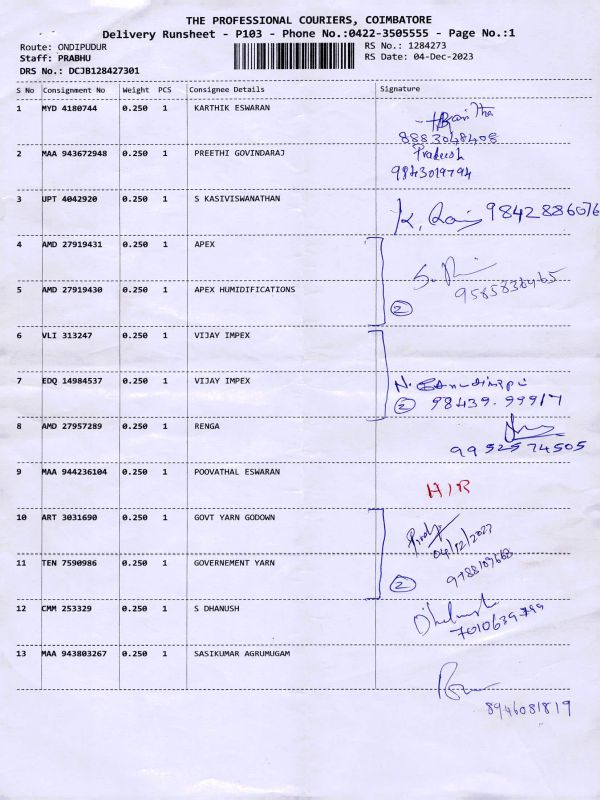 THE PROFESSIONAL COURIERS, COIMBATORE
Delivery Runsheet - P103 - Phone No.:0422-3505555 - Page No.:1
Route: ONDIPUDUR RS No.: 1284273
Staff: PRABHU RS Date: 04-Dec-2023
DRS No.: DCJB128427301
S No Consignment No Weight PCS Consignee Details Signature
1 MYD 4180744 0.250 1 KARTHIK ESWARAN
8883048408
2 MAA 943672948 0.250 1 PREETHI GOVINDARAJ Pradeesh
9843019794
3 UPT 4042920 0.250 1 S KASIVISWANATHAN
9842886076
4 AMD 27919431 0.250 1 APEX
5 AMD 27919430 0.250 1 APEX HUMIDIFICATIONS
2
6 VLI 313247 0.250 1 VIJAY IMPEX
7 EDQ 14984537 0.250 1 VIJAY IMPEX
2 98439.99917
8 AMD 27957289 0.250 1 RENGA
9952574505
9 MAA 944236104 0.250 1 POOVATHAL ESWARAN
H/R
10 ART 3031690 0.250 1 GOVT YARN GODOWN
04/12/2023
11 TEN 7590986 0.250 1 GOVERNEMENT YARN
2
12 CMM 253329 0.250 1 S DHANUSH
7010639799
13 MAA 943803267 0.250 1 SASIKUMAR AGRUMUGAM
8946081819